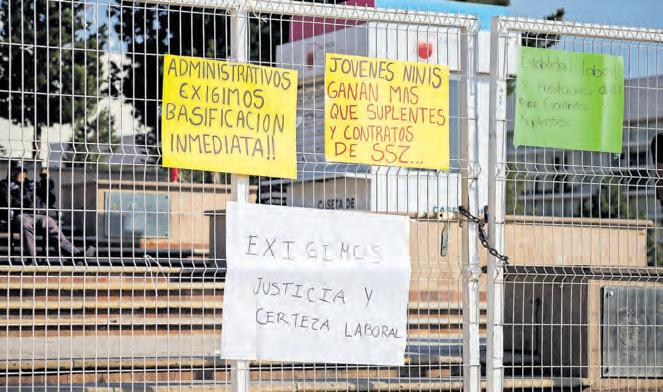 ADMINISTRATIVOS
EXIGIMOS
BASIFICACION
INMEDIATA!!
JOVENES NINIS
GANAN MAS
QUE SUPLENTES
Y CONTRATOS
DE SSZ...
Estabilidad laboral
y
para Contratos y
Suplentes
CASETA DE
EXIGIMOS
JUSTICIA Y
CERTEZA LABORAL